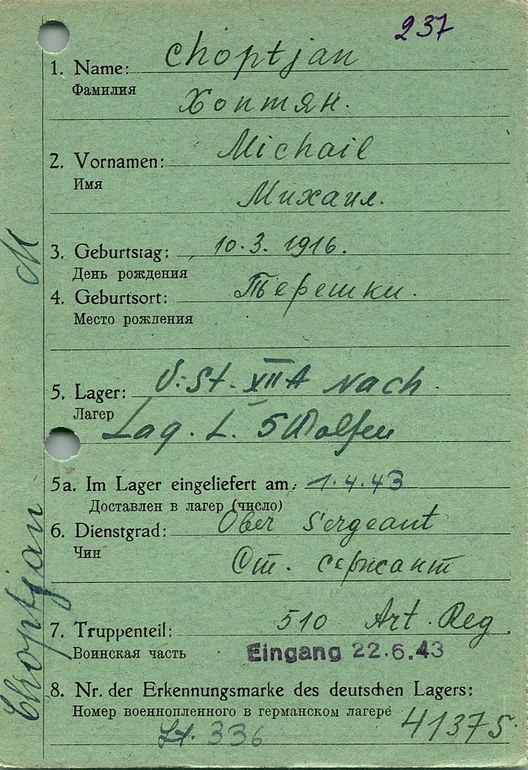 237
1. Name: Choptjan
Фамилия
Хоптян.
2. Vornamen: Michail
Имя
Михаил.
3. Geburtstag: 10.3. 1916.
День рождения
4. Geburtsort: Терешки.
Место рождения
5. Lager: V. St. XII A Nach.
Лагер
Lag. L. 5 Wolfen
5a. Im Lager eingeliefert am: 1.4.43
Доставлен в лагер (число)
6. Dienstgrad: Ober Sergeant
Чин
Ст. сержант
7. Truppenteil: 510 Art. Reg
Воинская часть
Eingang 22.6.43
8. Nr. der Erkennungsmarke des deutschen Lagers:
Номер военнопленного в германском лагере
41375.
336
Choptjan M